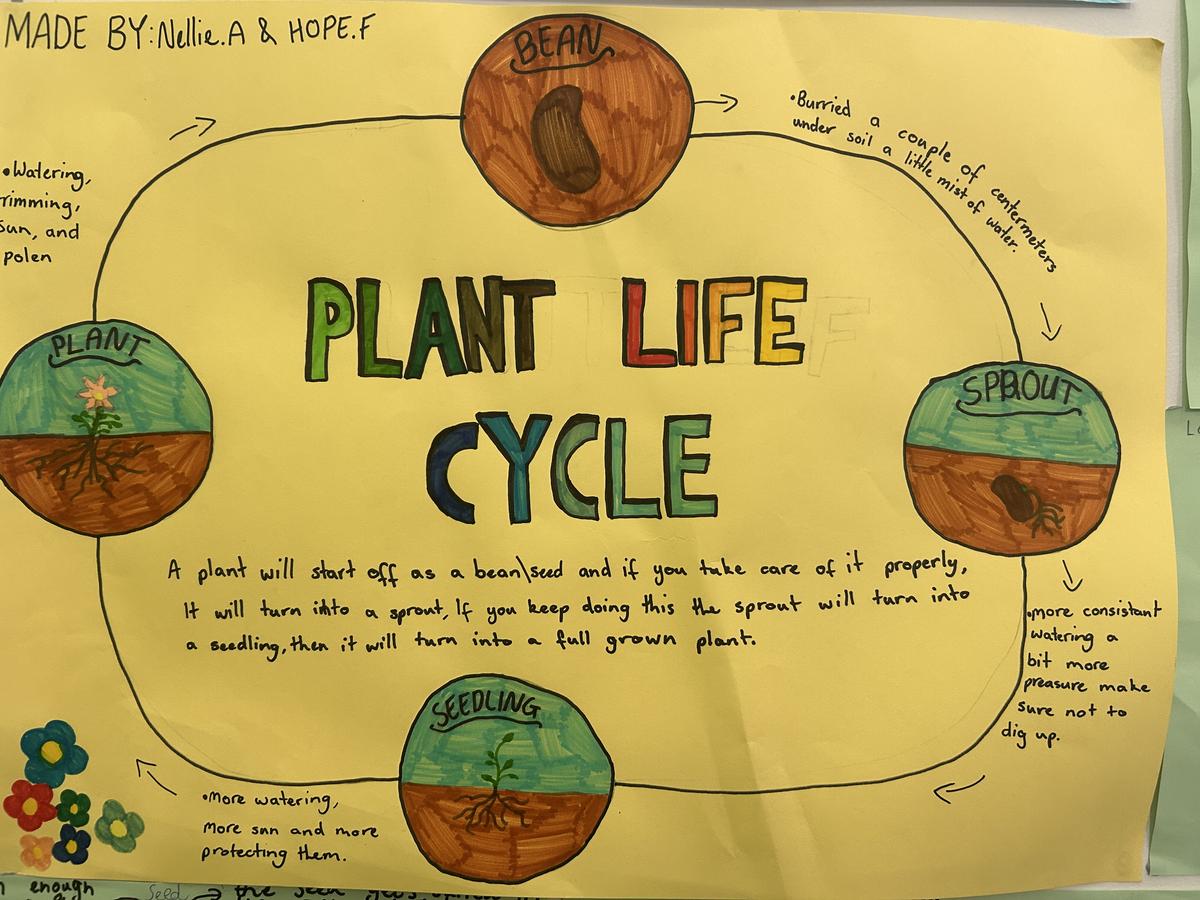 MADE BY: Nellie.A & HOPE.F
BEAN
•Burried a couple of centermeters
under soil a little mist of water.
•Watering,
rimming,
sun, and
polen
PLANT LIFE
CYCLE
PLANT
SPROUT
A plant will start off as a bean\seed and if you take care of it properly,
It will turn into a sprout, If you keep doing this the sprout will turn into
a seedling, then it will turn into a full grown plant.
•more consistant
watering a
bit more
preasure make
sure not to
dig up.
SEEDLING
•More watering,
More sun and more
protecting them.
enough
Seed
the seed gets